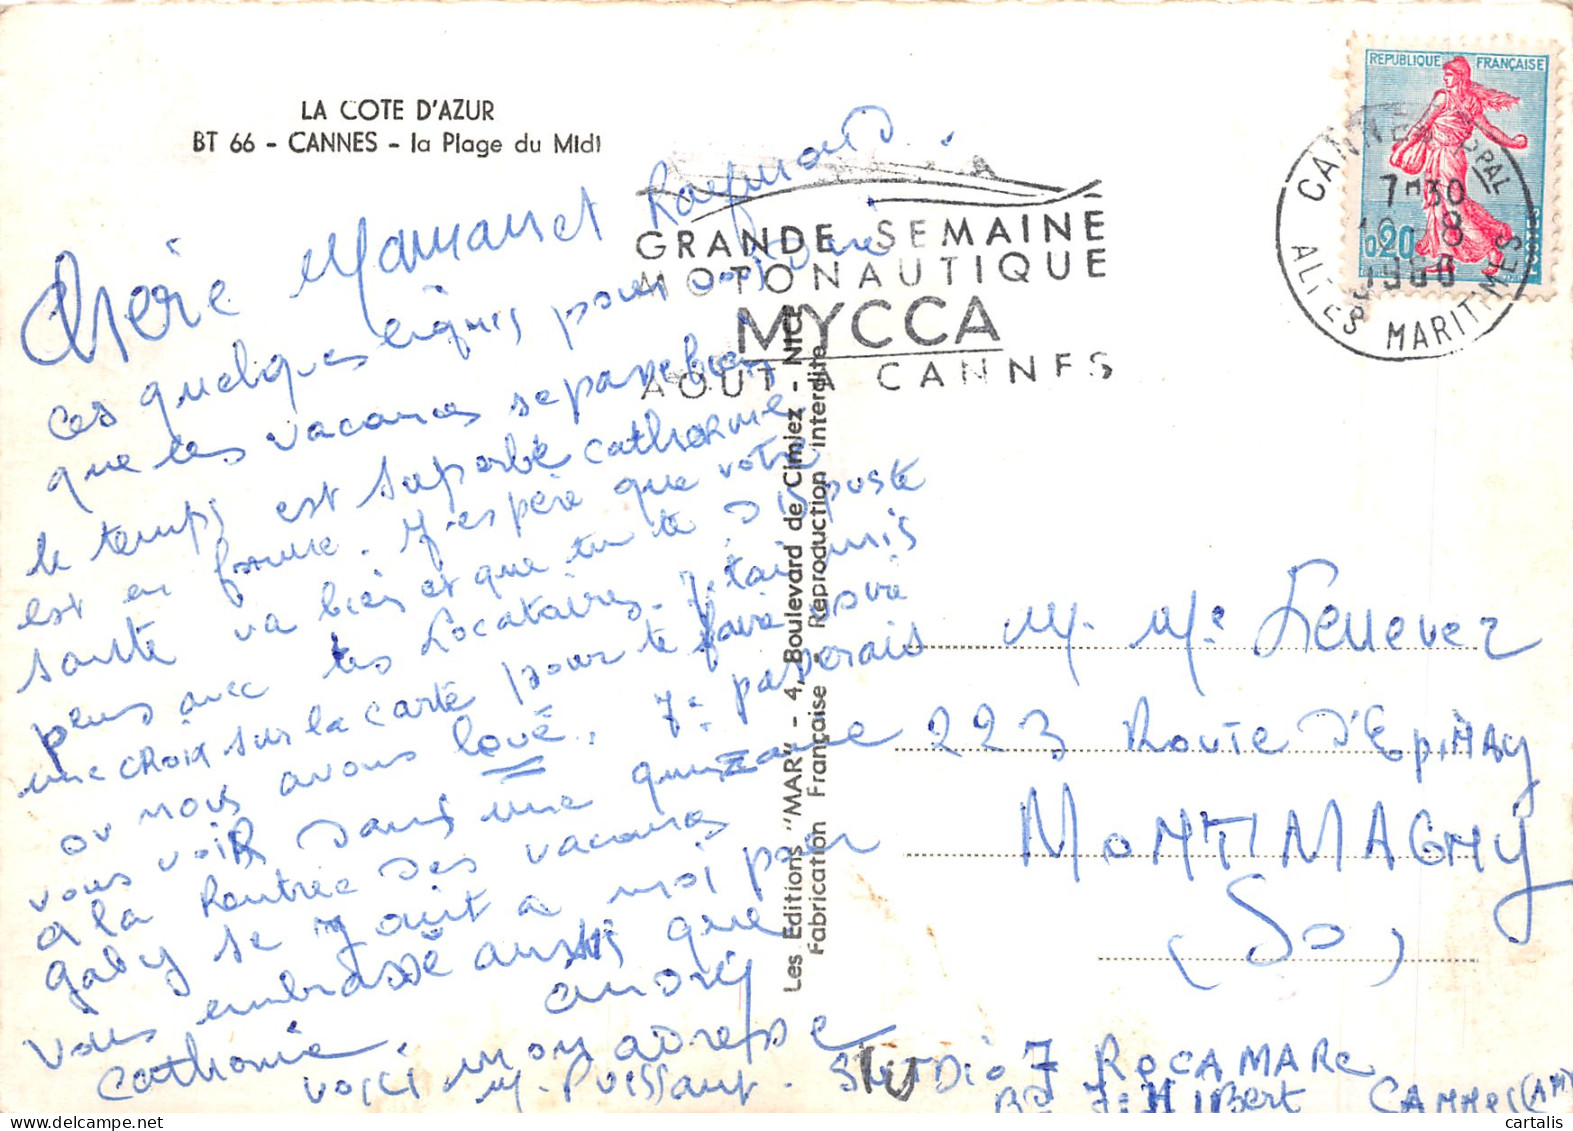 LA COTE D'AZUR
BT 66 - CANNES - la Plage du Midi
REPUBLIQUE FRANÇAISE
0,20
CANNES PPAL
7H30
8
ALPES MARITIMES
GRANDE SEMAINE
MOTONAUTIQUE
MYCCA
AOUT A CANNES
Chère Maman et Raymond.
Ces quelques lignes pour vous dire
que les vacances se passe bien
le temps est superbe Catherine
est en forme. J'espère que votre
santé va bien et que tu te dispute
plus avec tes Locataires. J'ai mis
une croix sur la carte pour te faire voire
ou nous avons loué. Je passerais
vous voir dans une quinzaine
a la Rentrée des vacances
Gaby se joint a moi pour
vous embrassé aussi que
Catherine. André
voici mon adresse
M. Puissant. STUDIO 7 ROCAMARE
Bd J. HIBert CANNES (AM)
Les Editions "MAR" - 4, Boulevard de Cimiez - NICE
Fabrication Française - Reproduction interdite
M. Me Lenevez
223 Route d'Epinay
MONTMAGNY
(SO)